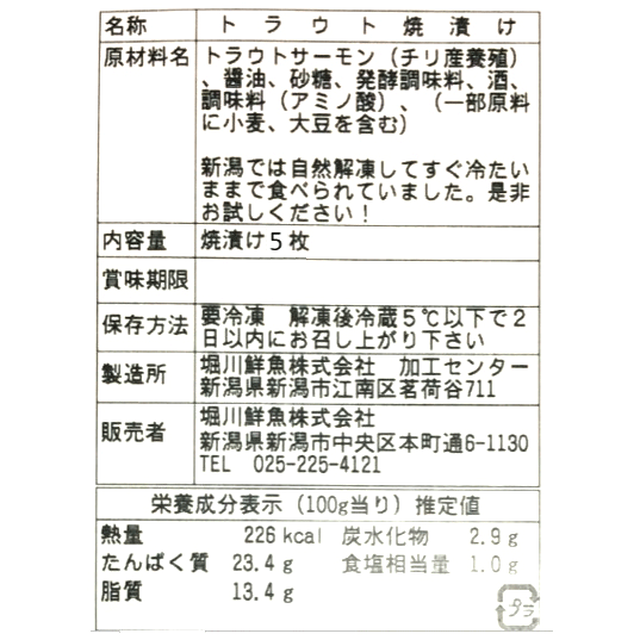 名称 トラウト焼漬け
原材料名 トラウトサーモン（チリ産養殖）
、醤油、砂糖、発酵調味料、酒、
調味料（アミノ酸）、（一部原料
に小麦、大豆を含む）
新潟では自然解凍してすぐ冷たい
ままで食べられていました。是非
お試しください！
内容量 焼漬け5枚
賞味期限
保存方法 要冷凍 解凍後冷蔵5℃以下で2
日以内にお召し上がり下さい
製造所 堀川鮮魚株式会社 加工センター
新潟県新潟市江南区茗荷谷711
販売者 堀川鮮魚株式会社
新潟県新潟市中央区本町通6-1130
TEL 025-225-4121
栄養成分表示（100g当り）推定値
熱量 226 kcal 炭水化物 2.9 g
たんぱく質 23.4 g 食塩相当量 1.0 g
脂質 13.4 g
プラ